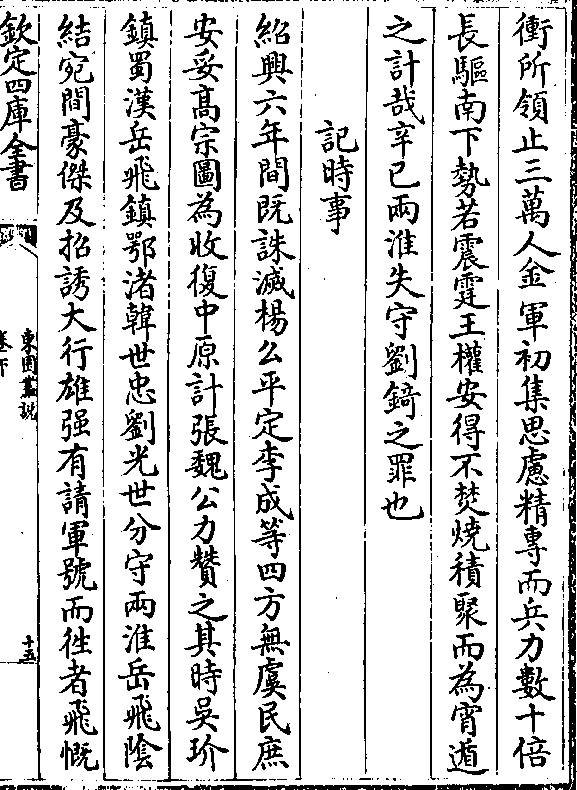 衝所領止三萬人金軍初集思慮精專而兵力數十倍
長驅南下勢若震霆王權安得不焚燒積聚而為宵遁
之計哉辛已兩淮失守劉錡之罪也
記時事
紹興六年間既誅滅楊公平定李成等四方無虞民庶
安妥髙宗圖為收復中原計張魏公力贊之其時吳玠
鎮蜀漢岳飛鎮鄂渚韓世忠劉光世分守兩淮岳飛陰
結宛間豪傑及招誘大行雄强有請軍號而徃者飛慨
欽定四庫全書
東園叢説
卷下
十五